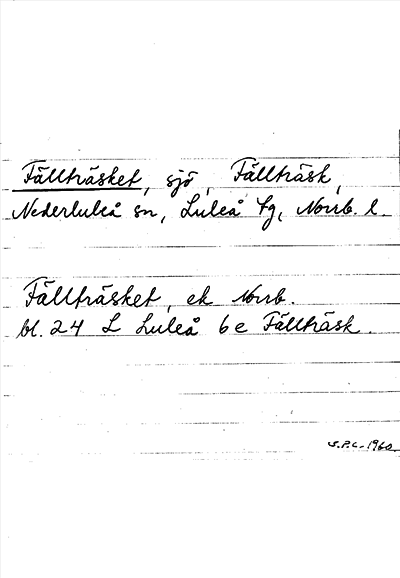 Fällträsket, sjö, Fällträsk,
Nederluleå sn, Luleå tg, Norrb. l.
Fällträsket, ek Norrb.
bl. 24 L Luleå 6e Fällträsk.
S.P.L. 1960